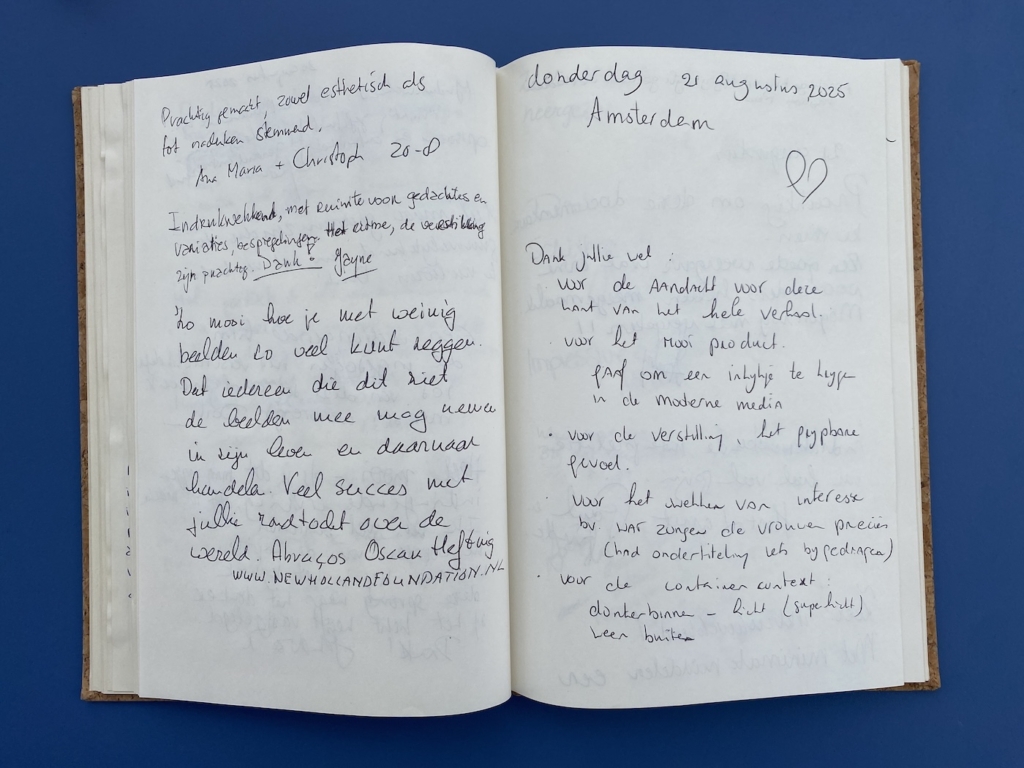 Prachtig gemaakt, zowel esthetisch als
tot nadenken stemmend.
Ana Maria + Christoph 20-8
Indrukwekkend, met ruimte voor gedachtes en
variaties, bespiegelingen. Het ritme, de verstilling
zijn prachtig. Dank!
Zo mooi hoe je met weinig
beelden zo veel kunt zeggen.
Dat iedereen die dit ziet
de beelden mee mag nemen
in zijn leven en daarnaar
handelen. Veel succes met
jullie rondtocht over de
wereld. Abraços Oscar Hefting
WWW.NEWHOLLANDFOUNDATION.NL
donderdag 21 augustus 2025
Amsterdam
Dank jullie wel:
voor de aandacht voor deze
kant van het hele verhaal.
voor het mooi product.
gaaf om een inkijkje te krijgen
in de moderne media
• voor de verstilling, het grijpbare
gevoel.
• voor het wekken van interesse
bv. wat zongen de vrouwen precies
(had ondertiteling iets bijgedragen)
• voor de container context:
donker binnen - licht (superlicht)
weer buiten